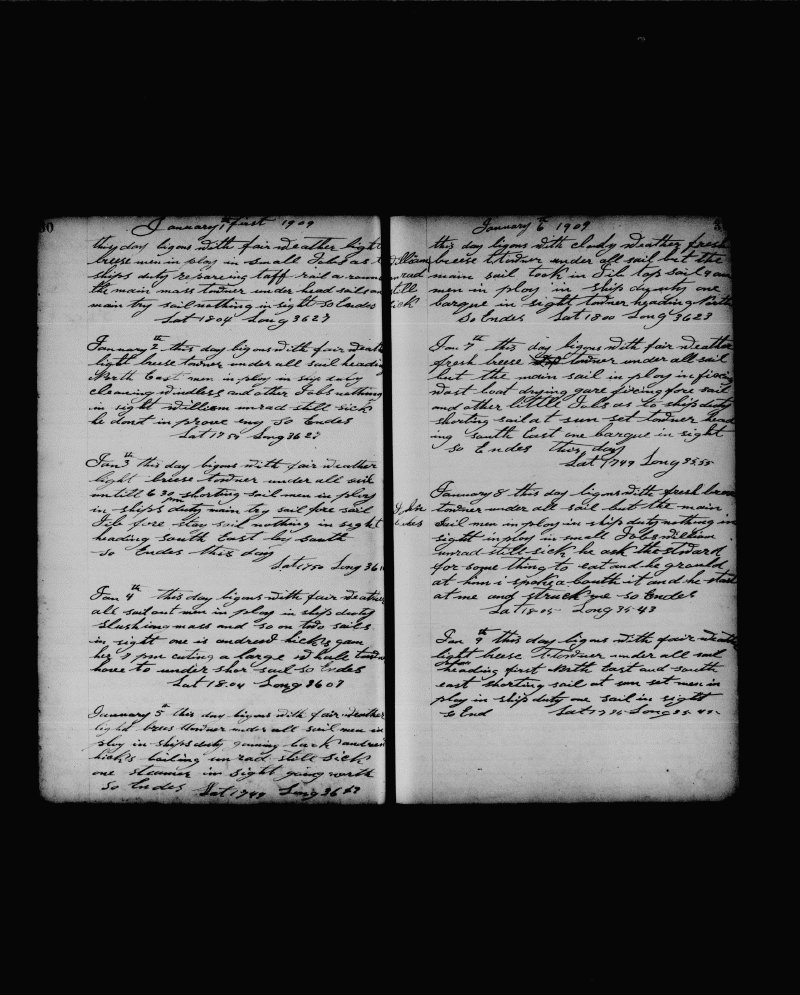 30
January 1st first 1909
this day bigons with fair weather light
breese men in ploy in small Jobs as
ships duty repareing taff rail a round
the main mass towner under head sails and
main try sail nothing in sight so Endes
Lat 18 04 Long 36 27
January 2th this day bigons with fair weath
light breese towner under all sail heading
North East men in ploy in ship duty
cleaning windless and other Jobs nothing
in sight william unrad still sick
he dont in prove eny so Endes
Lat 17 54 Long 36 2
Jan 3 this day bigons with fair weather
light breese towner under all sail
untill 6 30 pm shorting sail men in ploy
in ships duty main try sail fore sail
Jib fore stay sail nothing in sight
heading south East by south
so Endes this day
Lat 17 50 Long 36 1
Jan 4th this day bigons with fair weather
all sail out men in ploy in ships duty
slushing mass and so on two sails
in sight one is andreed hicks gam
her 7 pm cuting a large whale
hove to under shor sail so Endes
Lat 18.04 Long 36 07
January 5th this day bigons with fair weather
light brees towner under all sail men in
ploy in ships duty back andreed
hicks boiling unrad still sick
one steamer in sight going north
so Endes Lat 17 49 Long 36
william
unrad
still
sick
January 6 1909
this day bigons with cloudy weather fresh
breese towner under all sail but the
main sail took in Jib top sail 9 am
men in ploy in ship dyuty one
barque in sight towner heading North
So Endes Lat 18 00 Long 36 23
Jan 7th this day bigons with fair weather
fresh breese towner under all sail
but the main sail in ploy in fixing
wast boat drying gare fixcing fore sail
and other little Jobs as to ships duty
shorting sail at sun set towner head
ing south East one barque in sight
so Endes this day
Lat 17 49 Long 35.55
January 8 this day bigons with fresh breese
towner under all sail but the main
sail men in ploy in ship duty nothing in
sight in ploy in small Jobs william
unrad still sick he ask the stward
for some thing to eat and he grould
at him i spoke a bouth it and he start
at me and struck me so Endes
Lat 18-05- Long 35-43
Jan 9th this day bigons with fair weather
light breese towner under all sail
heading first North East and south
east shorting sail at sun set men in
ploy in ship duty one sail in sight
so End Lat 17 Long 35